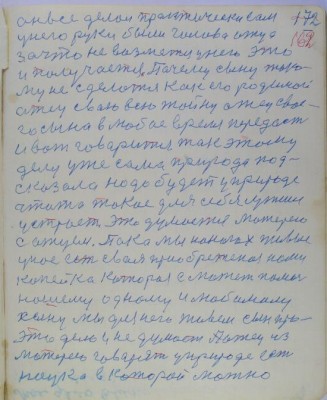 он все делал практически сам 172
у него руки были голова отца 162
за что не возмется у него это
и получается. Почему сыну тако-
му не сделатся как его родимой
отец свою всю тайну отец свое-
го сына в любое время передаст
и вот говорится так этому
делу уже сама природа под-
сказала надо будет в природе
что то такое для себя лучшее
устроет Это думается матерею
с отцем. Пока мы на ногах живые
у нас есть своя приобретеная нами
копейка которая сможет помоч
нашему одному и любимому
сыну мы для него живем сын про
это дело и не думает Потец из
матерею говорят у природе есть
наука в которой можно